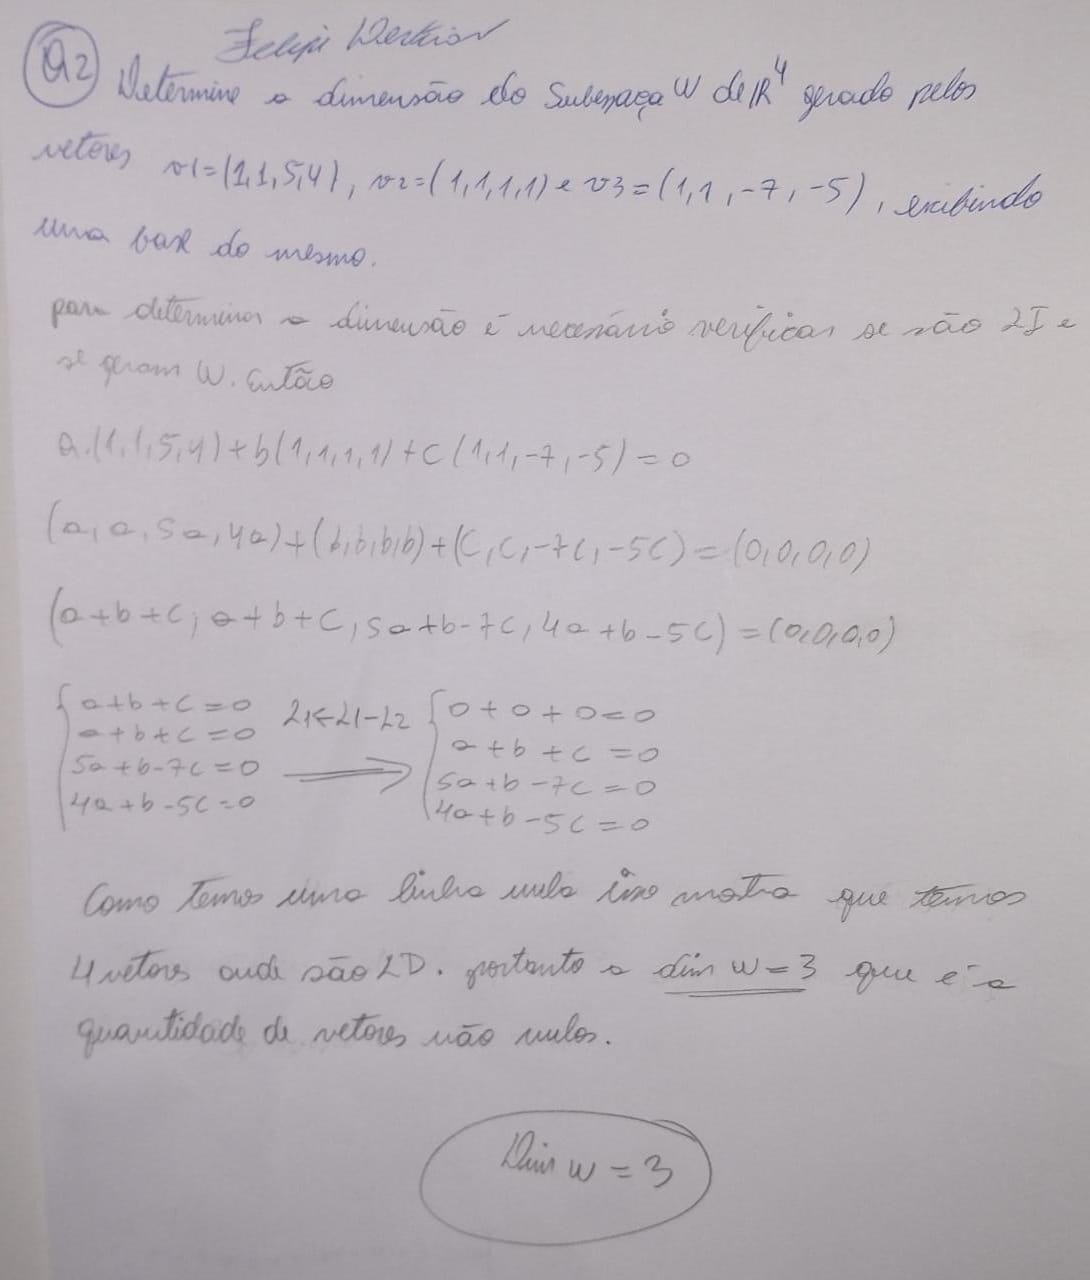 Q2
Determine a dimensão do Subespaço W de ℝ⁴ gerado pelos
vetores v1=(1,1,5,4), v2=(1,1,1,1) e v3=(1,1,-7,-5), exibindo
uma base do mesmo.
para determinar a dimensão é necessário verificar se são LI e
se geram W. Então
a.(1,1,5,4)+b(1,1,1,1)+c(1,1,-7,-5)=0
(a,a,5a,4a)+(b,b,b,b)+(c,c,-7c,-5c)=(0,0,0,0)
(a+b+c, a+b+c, 5a+b-7c, 4a+b-5c)=(0,0,0,0)
a+b+c=0 L1←L1-L2 0+0+0=0
a+b+c=0 a+b+c=0
5a+b-7c=0 → 5a+b-7c=0
4a+b-5c=0 4a+b-5c=0
Como temos uma linha nula isso mostra que temos
4 vetores onde são LD. portanto a dim W=3 que é a
quantidade de vetores não nulos.
Dim W=3